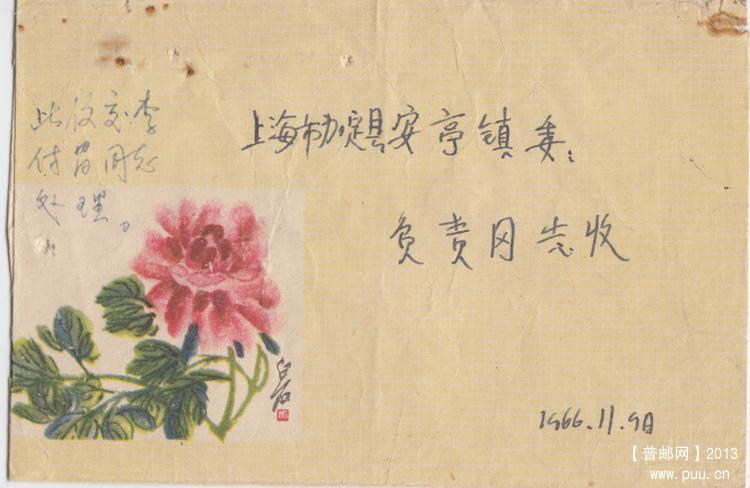 上海市加定县安亭镇委：
负责同志收
此信交李
付营同志
处理。
白石
1966.11.9日
【普邮网】2013
www.puu.cn